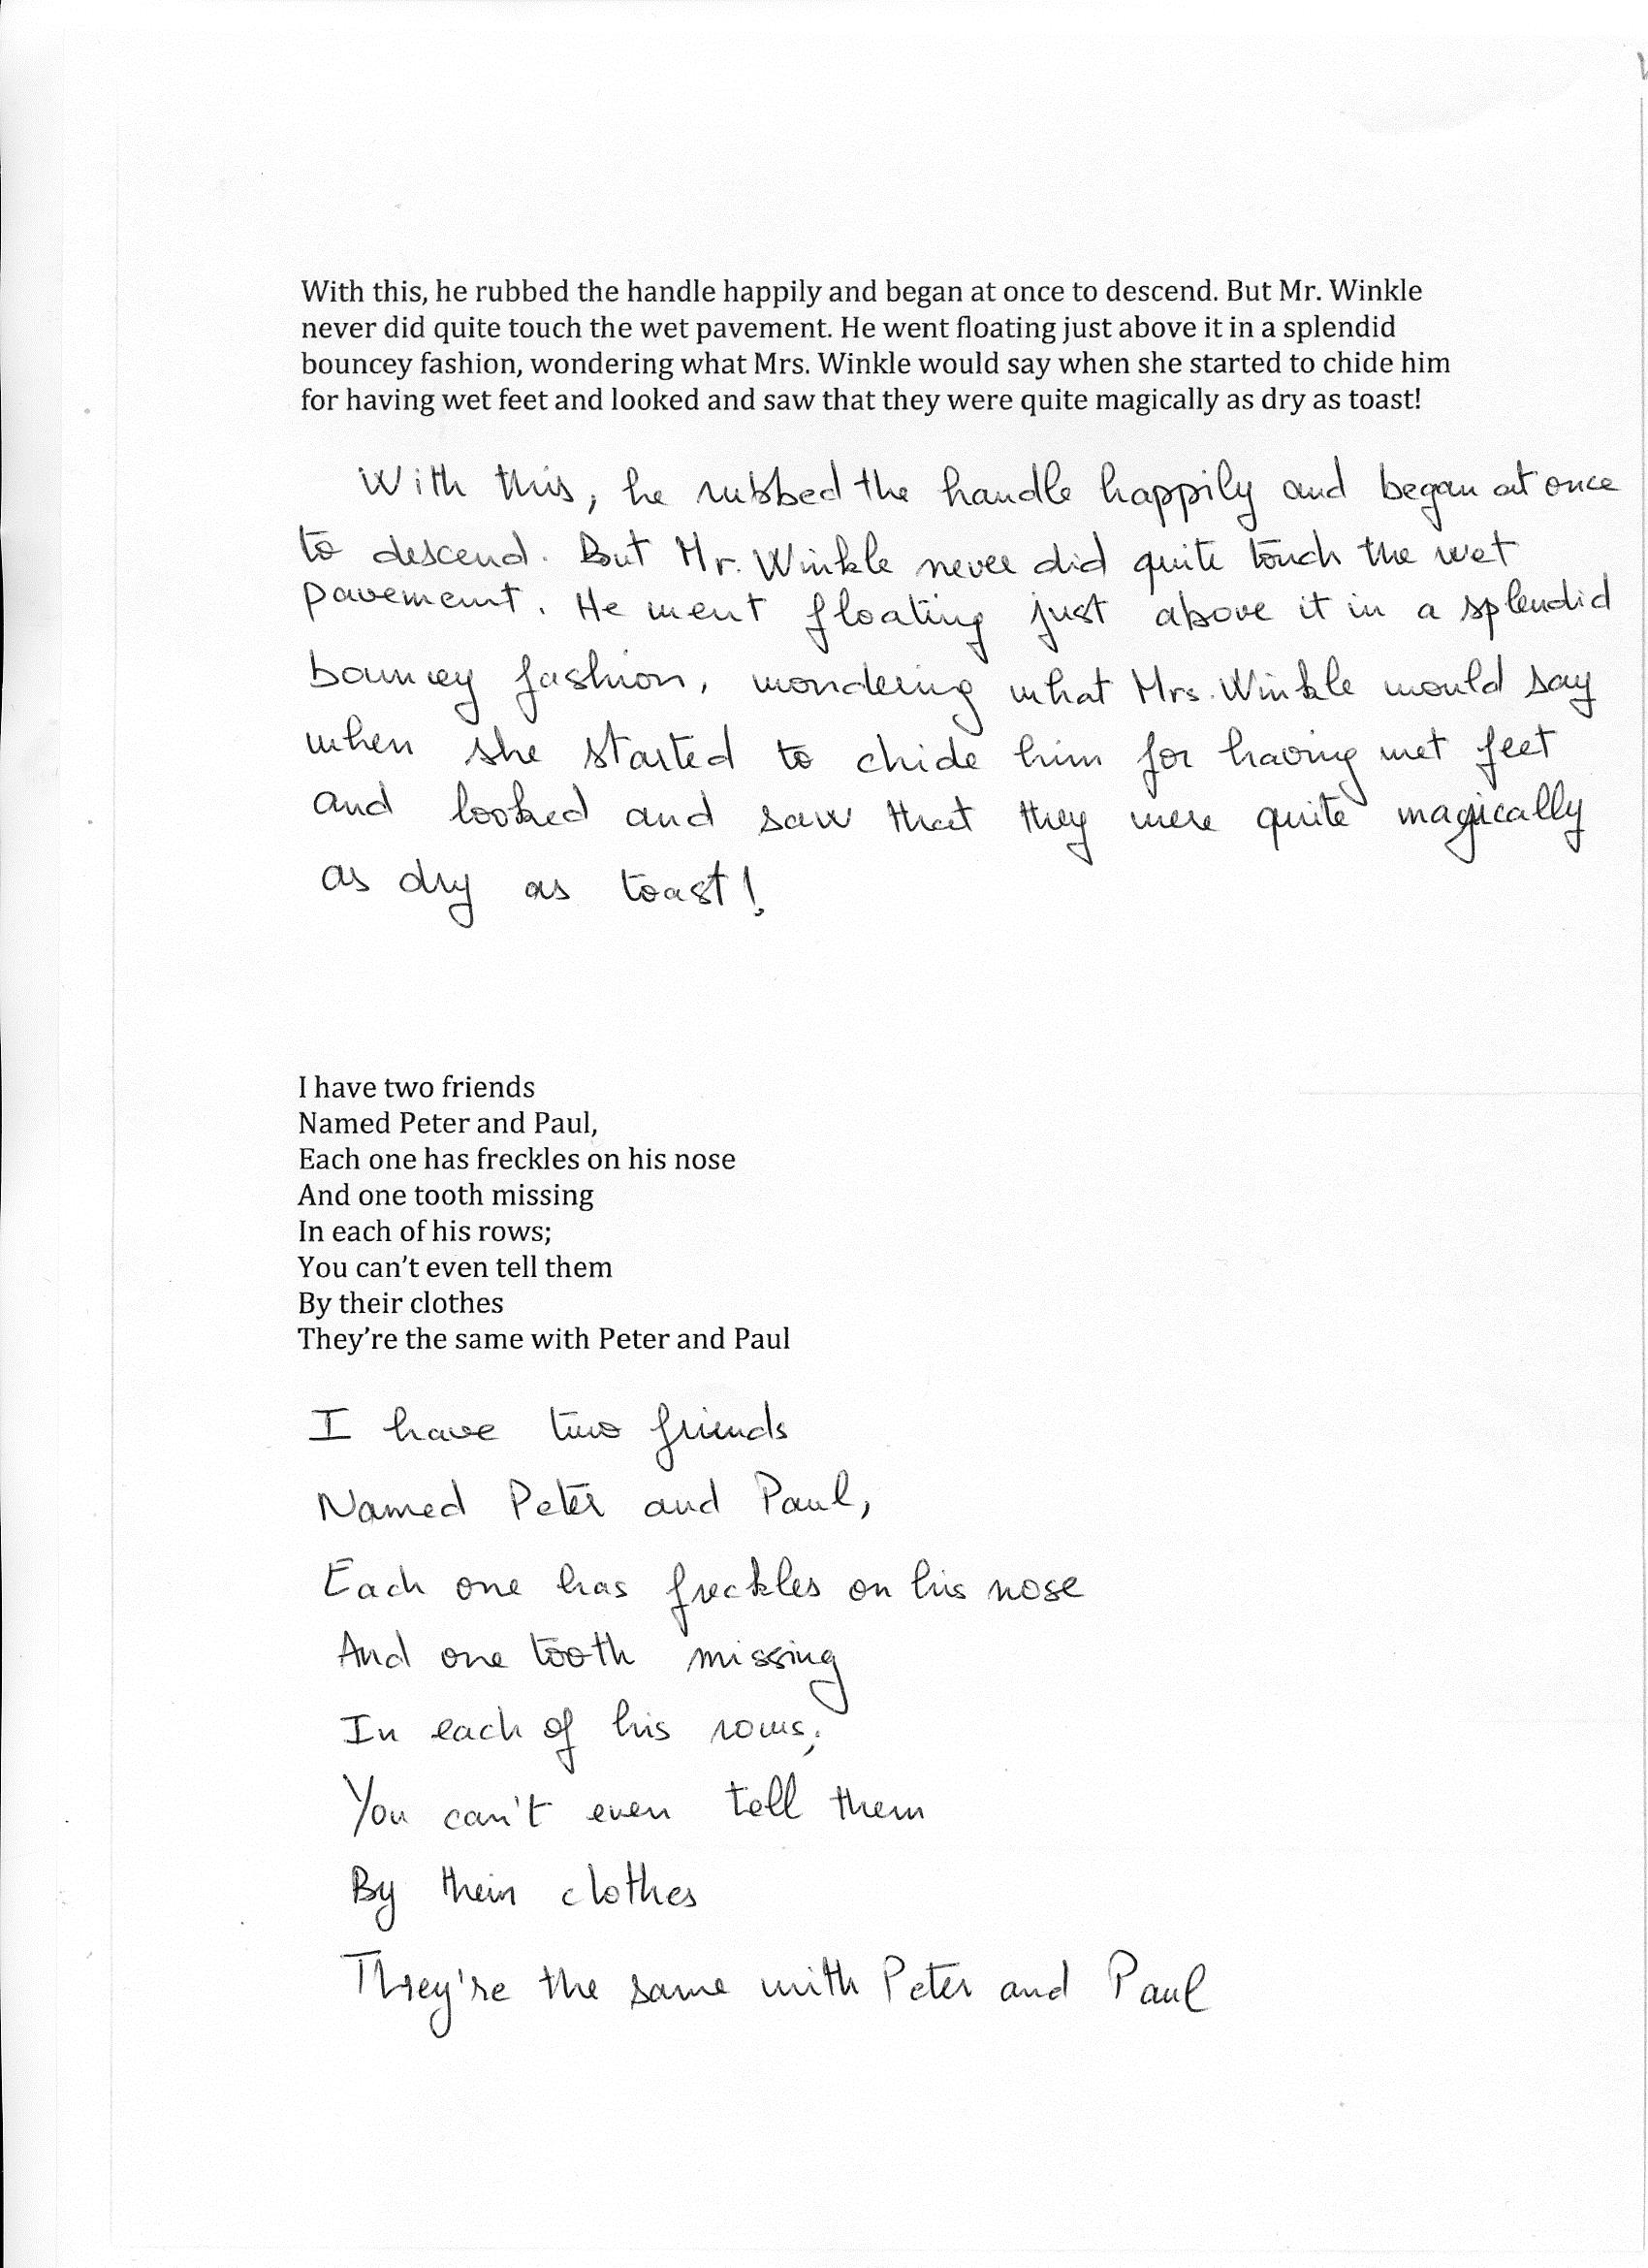 With this, he rubbed the handle happily and began at once to descend. But Mr. Winkle
never did quite touch the wet pavement. He went floating just above it in a splendid
bouncey fashion, wondering what Mrs. Winkle would say when she started to chide him
for having wet feet and looked and saw that they were quite magically as dry as toast!
With this, he rubbed the handle happily and began at once
to descend. But Mr. Winkle never did quite touch the wet
pavement. He went floating just above it in a splendid
bouncey fashion, wondering what Mrs. Winkle would say
when she started to chide him for having wet feet
and looked and saw that they were quite magically
as dry as toast!
I have two friends
Named Peter and Paul,
Each one has freckles on his nose
And one tooth missing
In each of his rows;
You can't even tell them
By their clothes
They're the same with Peter and Paul
I have two friends
Named Peter and Paul,
Each one has freckles on his nose
And one tooth missing
In each of his rows;
You can't even tell them
By their clothes
They're the same with Peter and Paul